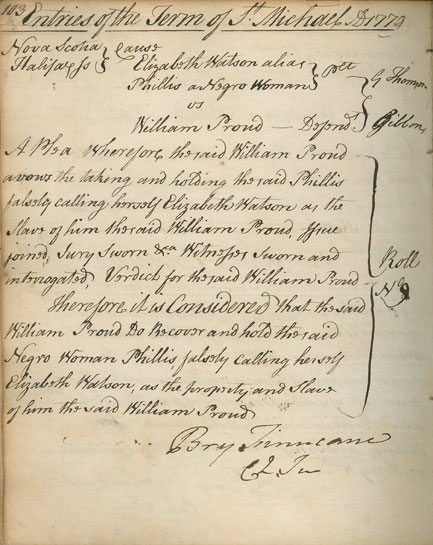 103 Entries of the Term of St. Michael AD 1779
Nova Scotia } Cause
Halifax Ss } Elizabeth Watson alias } Plt } G Thomson
Phillis a Negro Woman
vs
William Proud — Defend.t } Gibbons
A Plea Wherefore the said William Proud
avows the taking and holding the said Phillis
falsely calling herself Elizabeth Watson as the
Slave of him the said William Proud, Issue
joined, Jury Sworn &ca Witnesses Sworn and
interrogated, Verdict for the said William Proud
Roll
No 9
Therefore it is Considered that the said
William Proud Do Recover and hold the said
Negro Woman Phillis falsely calling herself
Elizabeth Watson, as the property and Slave
of him the said William Proud
Bry Finucane